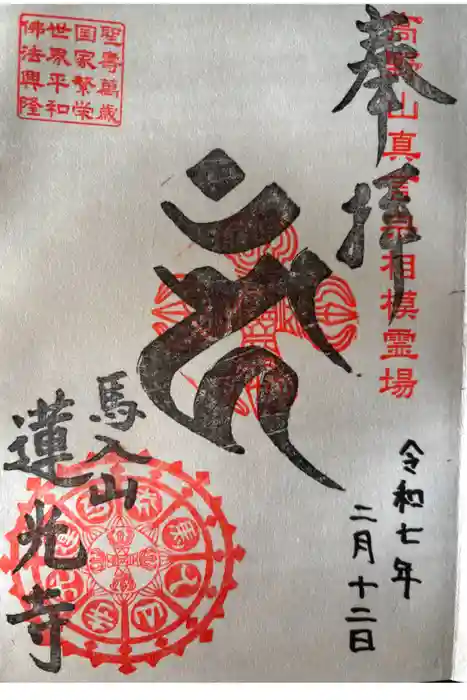 奉拝
高野山真言宗相模霊場
聖寿萬歳
国家繁栄
世界平和
佛法興隆
馬入山
蓮光寺
令和七年
二月十二日